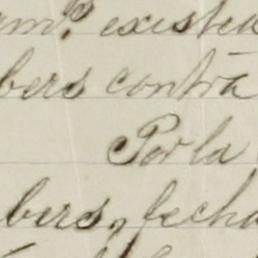 existen
bers contra
Por la
bers, fecha